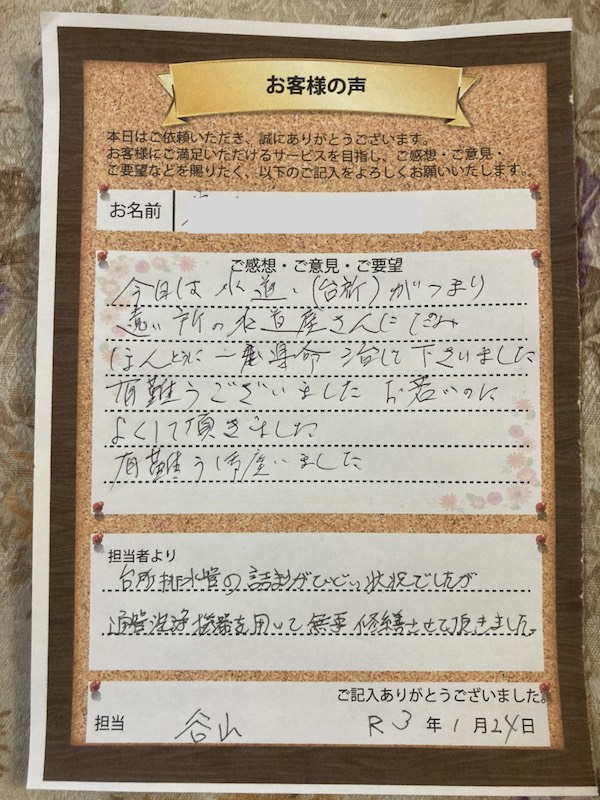 お客様の声
本日はご依頼いただき、誠にありがとうございます。
お客様にご満足いただけるサービスを目指し、ご感想・ご意見・
ご要望などを賜りたく、以下のご記入をよろしくお願いいたします。
お名前
ご感想・ご意見・ご要望
今日は水道い(台所)がつまり
遠い所の水道屋さんに
ほんとうに一生懸命治して下さいました
有難うございました お若いのに
よくして頂きました
有難う御座いました
担当者より
台所排水管の詰まりがひどい状況でしたが
通管洗浄機器を用いて無事修繕させて頂きました。
ご記入ありがとうございました。
担当 谷山 R3年1月24日